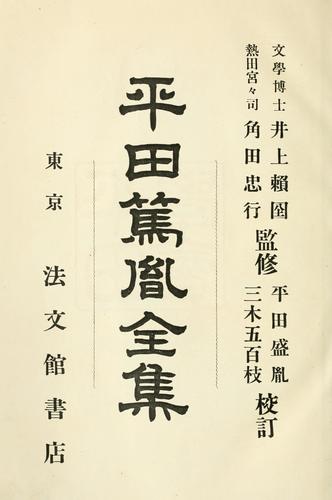 文學博士 井上賴囶
熱田宮々司 角田忠行
監修
平田盛胤
三木五百枝
校訂
平田篤胤全集
東京 法文館書店